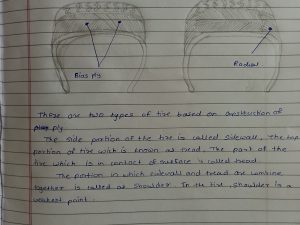 Bias ply
Radial
These are two types of tire based on construction of
ply
The side portion of the tire is called sidewall. The top
portion of tire wich is known as tread. The part of the
tire which is in contact of surface is called tread.
The portion in which sidewall and tread are combine
together is called as shoulder. In the tire, shoulder is a
weakest point.